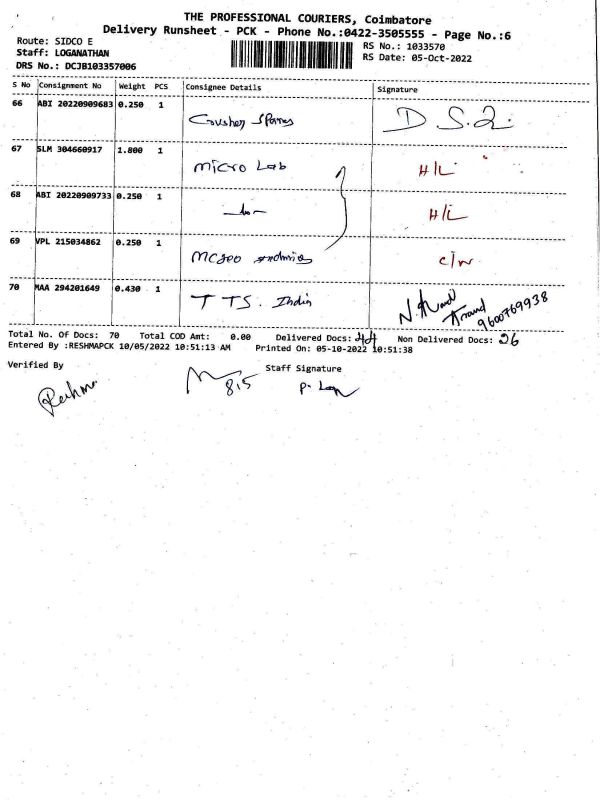 THE PROFESSIONAL COURIERS, Coimbatore
Delivery Runsheet - PCK - Phone No.:0422-3505555 - Page No.:6
Route: SIDCO E
Staff: LOGANATHAN
DRS No.: DCJB103357006
RS No.: 1033570
RS Date: 05-Oct-2022
S No Consignment No Weight PCS Consignee Details Signature
66 ABI 20220909683 0.250 1 D S.2.
67 SLM 304660917 1.800 1 Micro Lab H/L
68 ABI 20220909733 0.250 1 H/L
69 VPL 215034862 0.250 1 c/n
70 MAA 294201649 0.430 1 T TS. India
Anand
9600769938
Total No. Of Docs: 70 Total COD Amt: 0.00 Delivered Docs: 44 Non Delivered Docs: 26
Entered By :RESHMAPCK 10/05/2022 10:51:13 AM Printed On: 05-10-2022 10:51:38
Verified By Staff Signature
Reshma
815